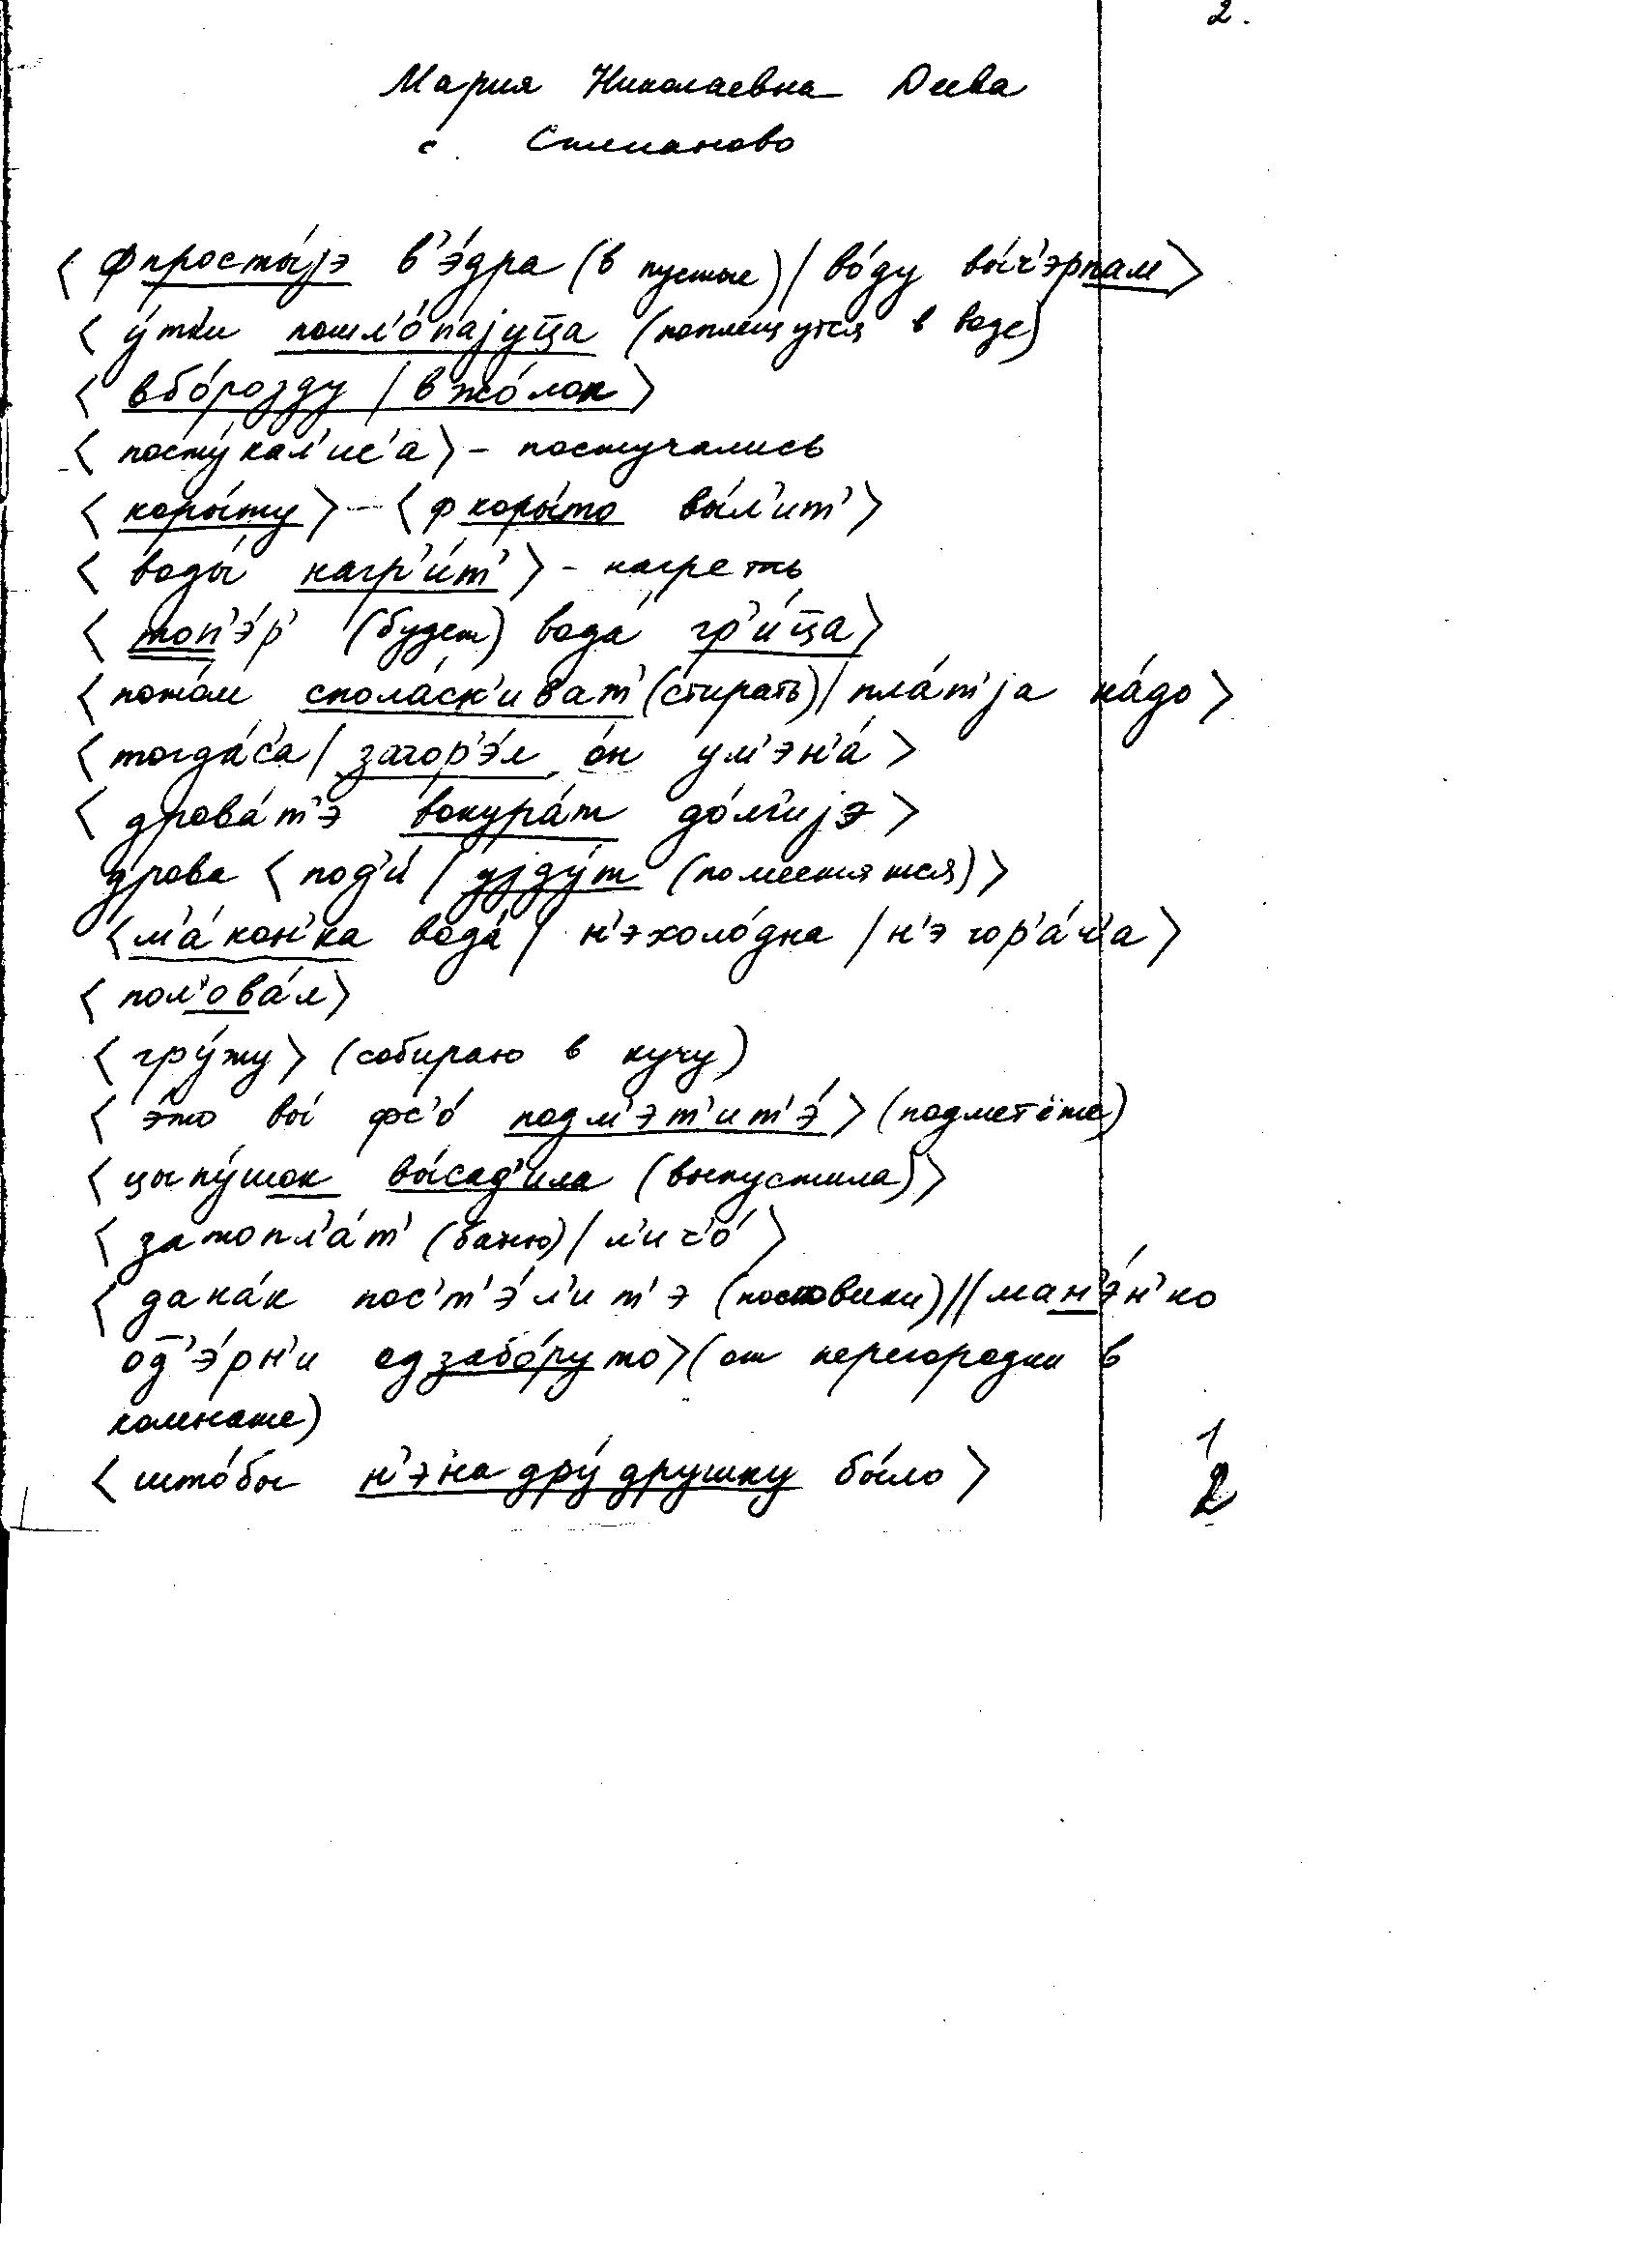 2.
Мария Николаевна Деева
с. Степаново
〈фросты́jэ в'э́дра (в пустые) / во́ду вы́ч'эрпам〉
〈у́тки пошл'о́паjуц̄а (поплещутся в воде)
〈вбо́розду / вжо́лоп〉
〈посту́кал'ис'а〉 - постучались
〈коры́ту〉 - 〈ф коры́то вы́л'ит'〉
〈воды́ нагр'и́т'〉 - нагреть
〈топ'э́р' (будет) вода́ гр'и́ц̄а〉
〈пото́м спола́ск'иват' (стирать) / пла́т'jа на́до〉
〈тогда́с'а / загор'э́л о́н ум'эн'а́〉
〈дрова́т'э вокура́т до́лг'иjэ〉
дрова 〈под'и́ / уjду́т (поместятся)〉
〈м'а́кон'ка вода́ / н'эхоло́дна / н'э гор'а́ч'а〉
〈пол'ова́л〉
〈гру́жу〉 (собираю в кучу)
〈э́то вы́ фс'о́ подм'эт'ит'э́〉 (подметёте)
〈цыпу́шок вы́сад'ила (выпустила)〉
〈затопл'а́т' (баню) / л'и ч'о́〉
〈дака́к пос'т'э́л'ит'э (половики) // ман'э́н'ко
од̄'э́рн'и одзабо́руто〉 (от перегородки в
комнате)
〈што́бы н'энадру́друшку бы́ло〉
1
2